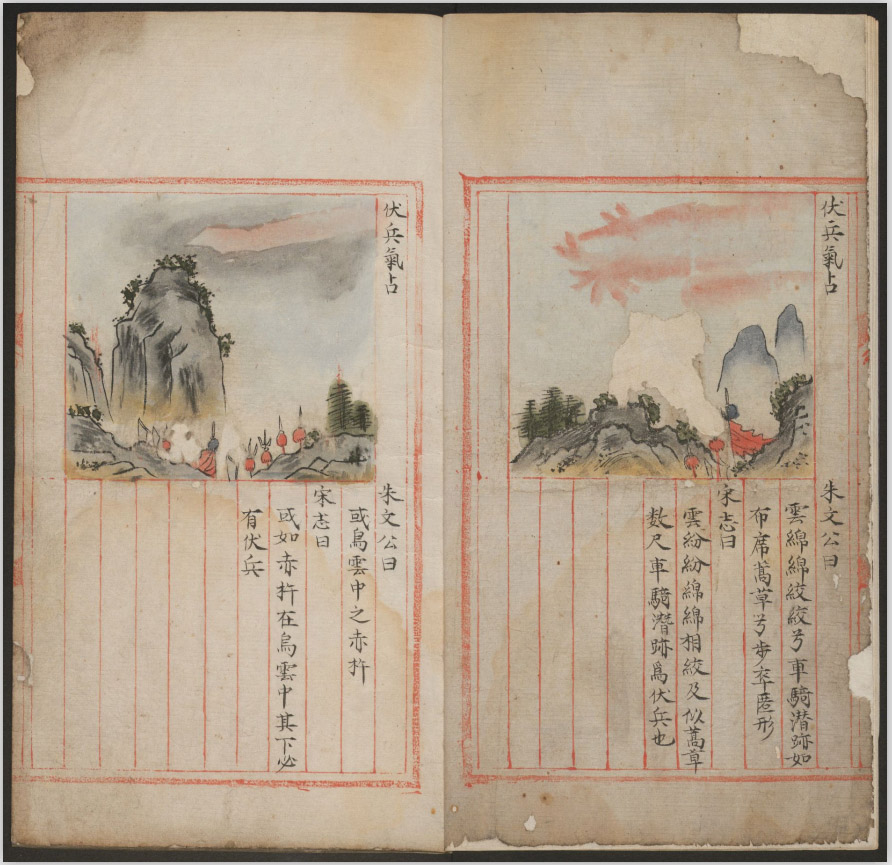 伏兵氣占
朱文公曰
雲綿綿絞絞兮車騎潛跡如
布席蒿草兮步卒匿形
宋志曰
雲紛紛綿綿相絞及似蒿草
数尺車騎潛跡為伏兵也
伏兵氣占
朱文公曰
或烏雲中之赤杵
宋志曰
或如赤杵在烏雲中其下必
有伏兵